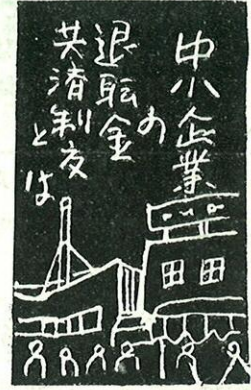 中小企業の
退転金
共済制度
とは